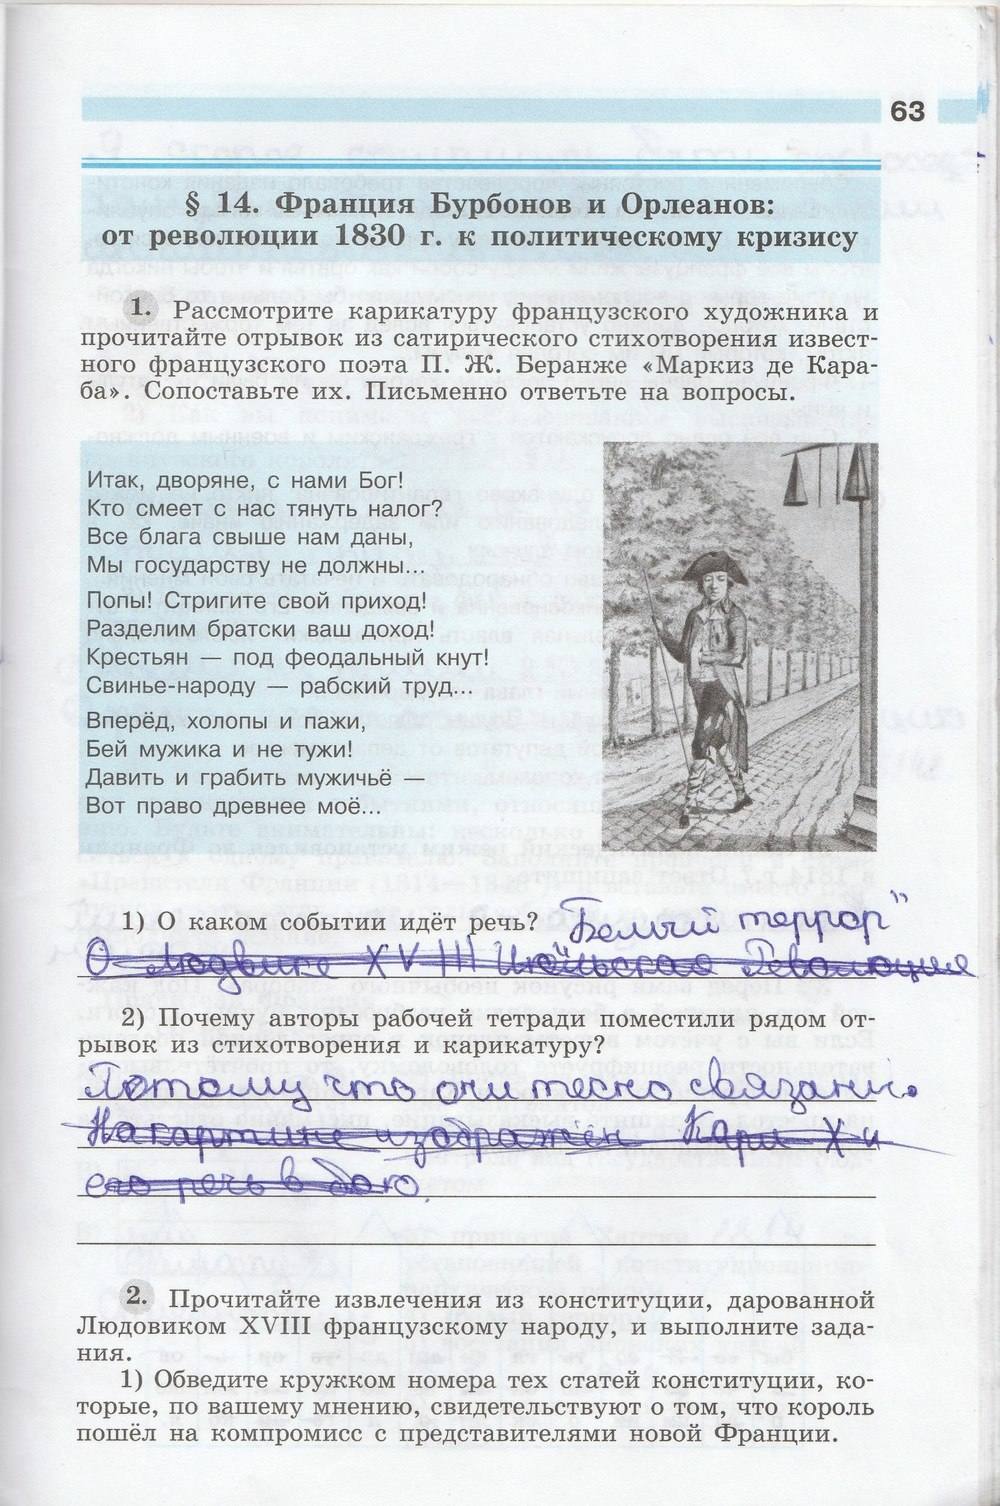 63
§ 14. Франция Бурбонов и Орлеанов:
от революции 1830 г. к политическому кризису
1. Рассмотрите карикатуру французского художника и
прочитайте отрывок из сатирического стихотворения извест-
ного французского поэта П. Ж. Беранже «Маркиз де Кара-
ба». Сопоставьте их. Письменно ответьте на вопросы.
Итак, дворяне, с нами Бог!
Кто смеет с нас тянуть налог?
Все блага свыше нам даны,
Мы государству не должны...
Попы! Стригите свой приход!
Разделим братски ваш доход!
Крестьян — под феодальный кнут!
Свинье-народу — рабский труд...
Вперёд, холопы и пажи,
Бей мужика и не тужи!
Давить и грабить мужичьё —
Вот право древнее моё...
1) О каком событии идёт речь? "Белый террор"
О Людвике XVIII Июльская Революция
2) Почему авторы рабочей тетради поместили рядом от-
рывок из стихотворения и карикатуру?
Потому что они тесно связанны.
На картине изображён Карл X и
его речь в бою.
2. Прочитайте извлечения из конституции, дарованной
Людовиком XVIII французскому народу, и выполните зада-
ния.
1) Обведите кружком номера тех статей конституции, ко-
торые, по вашему мнению, свидетельствуют о том, что король
пошёл на компромисс с представителями новой Франции.